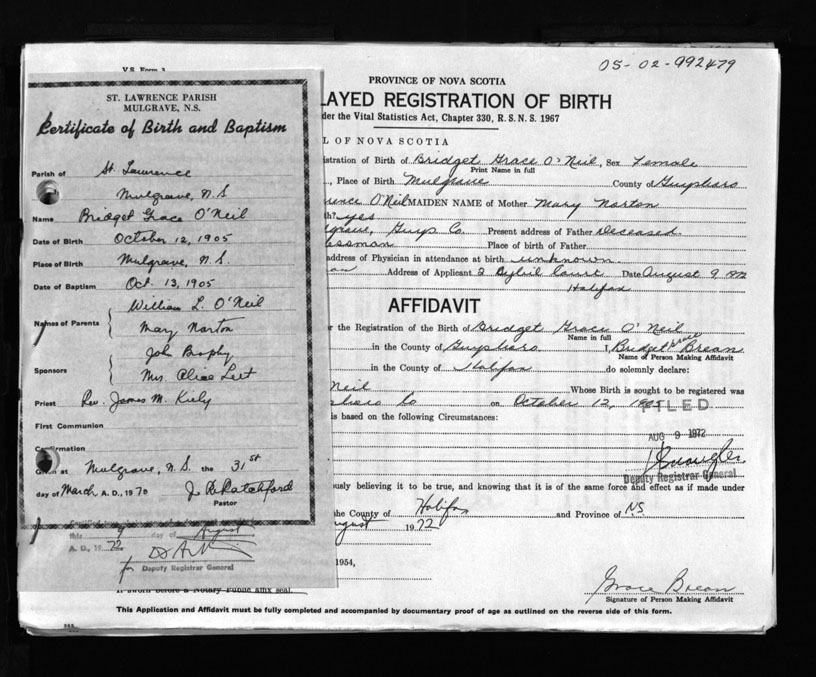 05-02-992479
V.S. Form 3
PROVINCE OF NOVA SCOTIA
LAYED REGISTRATION OF BIRTH
der the Vital Statistics Act, Chapter 330, R. S. N. S. 1967
L OF NOVA SCOTIA
istration of Birth of Bridget Grace O'Neil, Sex Female
Print Name in full
Place of Birth Mulgrave County of Guysboro
rence O'Neil MAIDEN NAME of Mother Mary Norton
h? yes
lgrave, Guys Co. Present address of Father Deceased
essman Place of birth of Father
address of Physician in attendance at birth unknown.
Address of Applicant 2 Court Date August 9, 1972
Halifax
AFFIDAVIT
r the Registration of the Birth of Bridget Grace O'Neil
Name in full
in the County of Guysboro I, Bridget Grace Brean
Name of Person Making Affidavit
in the County of Halifax do solemnly declare:
Neil Whose Birth is sought to be registered was
sboro Co on October 12, 1905
FILED
is based on the following Circumstances:
AUG 9 1972
Deputy Registrar General
usly believing it to be true, and knowing that it is of the same force and effect as if made under
the County of Halifax and Province of NS
ugust 1972
1954,
Grace Brean
Signature of Person Making Affidavit
If sworn before a Notary Public affix seal.
This Application and Affidavit must be fully completed and accompanied by documentary proof of age as outlined on the reverse side of this form.
ST. LAWRENCE PARISH
MULGRAVE, N.S.
Certificate of Birth and Baptism
Parish of St. Lawrence
Mulgrave, N.S
Name Bridget Grace O'Neil
Date of Birth October 12, 1905
Place of Birth Mulgrave, N.S.
Date of Baptism Oct. 13, 1905
William L. O'Neil
Names of Parents
Mary Norton
John Brophy
Sponsors
Mrs. Alice
Priest Rev. James M. Kiely
First Communion
Confirmation
Given at Mulgrave, N.S. the 31st
day of March A.D., 1970 J. B. Ratchford
Pastor
this 9 day of August
A. D., 1972
for Deputy Registrar General